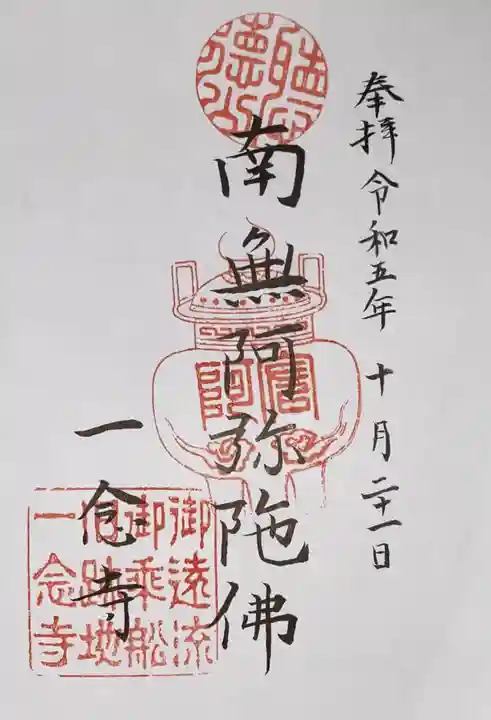 奉拝 令和五年 十月二十一日
南無阿弥陀佛
一念寺
御遠流
御乗船
旧跡地
一念寺